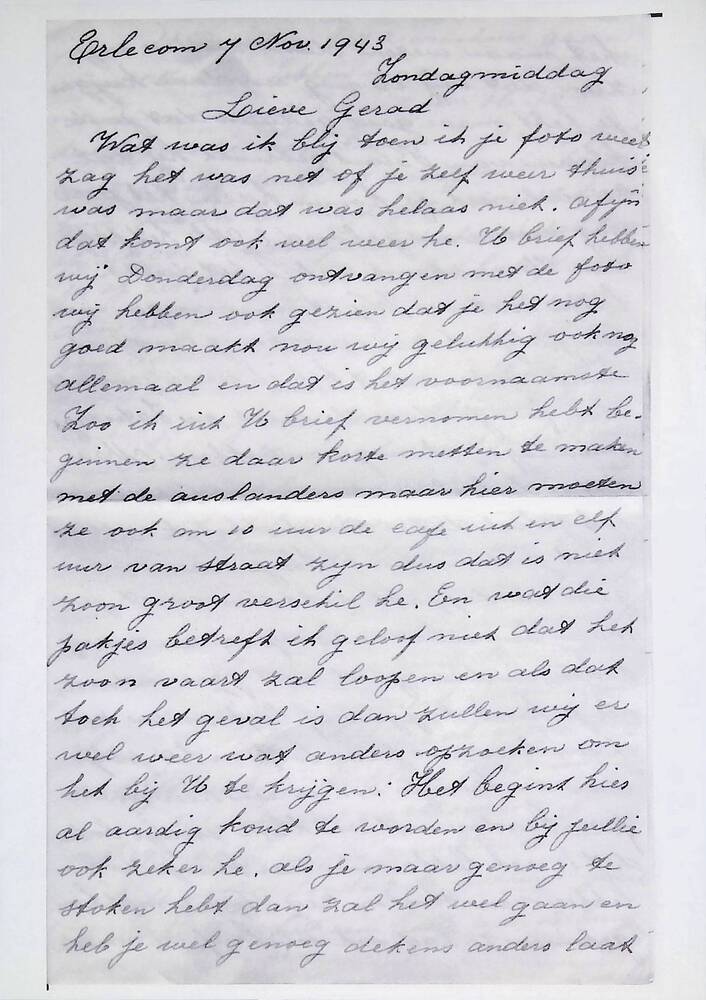 Erlecom 7 Nov. 1943
Zondagmiddag
Lieve Gerad
Wat was ik blij toen ik je foto weer
zag het was net of je zelf weer thuis
was maar dat was helaas niet. afijn
dat komt ook wel weer he. U brief hebben
wij Donderdag ontvangen met de foto
wij hebben ook gezien dat je het nog
goed maakt nou wij gelukkig ook nog
allemaal en dat is het voornaamste
Zoo ik uit U brief vernomen hebt be-
ginnen ze daar korte metten te maken
met de auslanders maar hier moeten
ze ook om 10 uur de cafe uit en elf
uur van straat zijn dus dat is niet
zoon groot verschil he. En wat die
pakjes betreft ik geloof niet dat het
zoon vaart zal loopen en als dat
toch het geval is dan zullen wij er
wel weer wat anders opzoeken om
het bij U te krijgen. Het begint hier
al aardig koud te worden en bij jullie
ook zeker he. als je maar genoeg te
stoken hebt dan zal het wel gaan en
heb je wel genoeg dekens anders laat